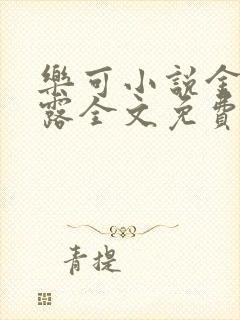 樂可小說金
露全文免費
青提